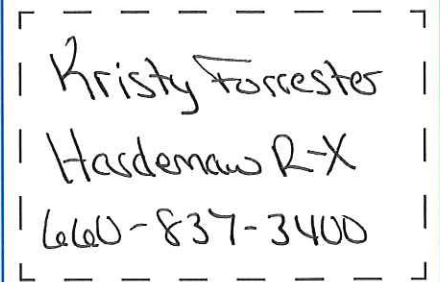 Kristy Forrester
Hardeman R-X
660-837-3400